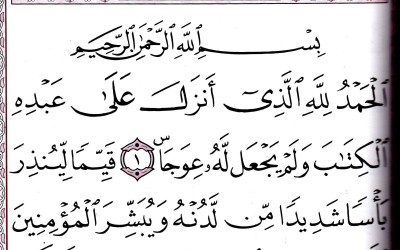 بِسْمِ ٱللَّهِ ٱلرَّحْمَٰنِ ٱلرَّحِيمِ
ٱلْحَمْدُ لِلَّهِ ٱلَّذِىٓ أَنزَلَ عَلَىٰ عَبْدِهِ
ٱلْكِتَٰبَ وَلَمْ يَجْعَل لَّهُۥ عِوَجَاۜ ١ قَيِّمًا لِّيُنذِرَ
بَأْسًا شَدِيدًا مِّن لَّدُنْهُ وَيُبَشِّرَ ٱلْمُؤْمِنِينَ